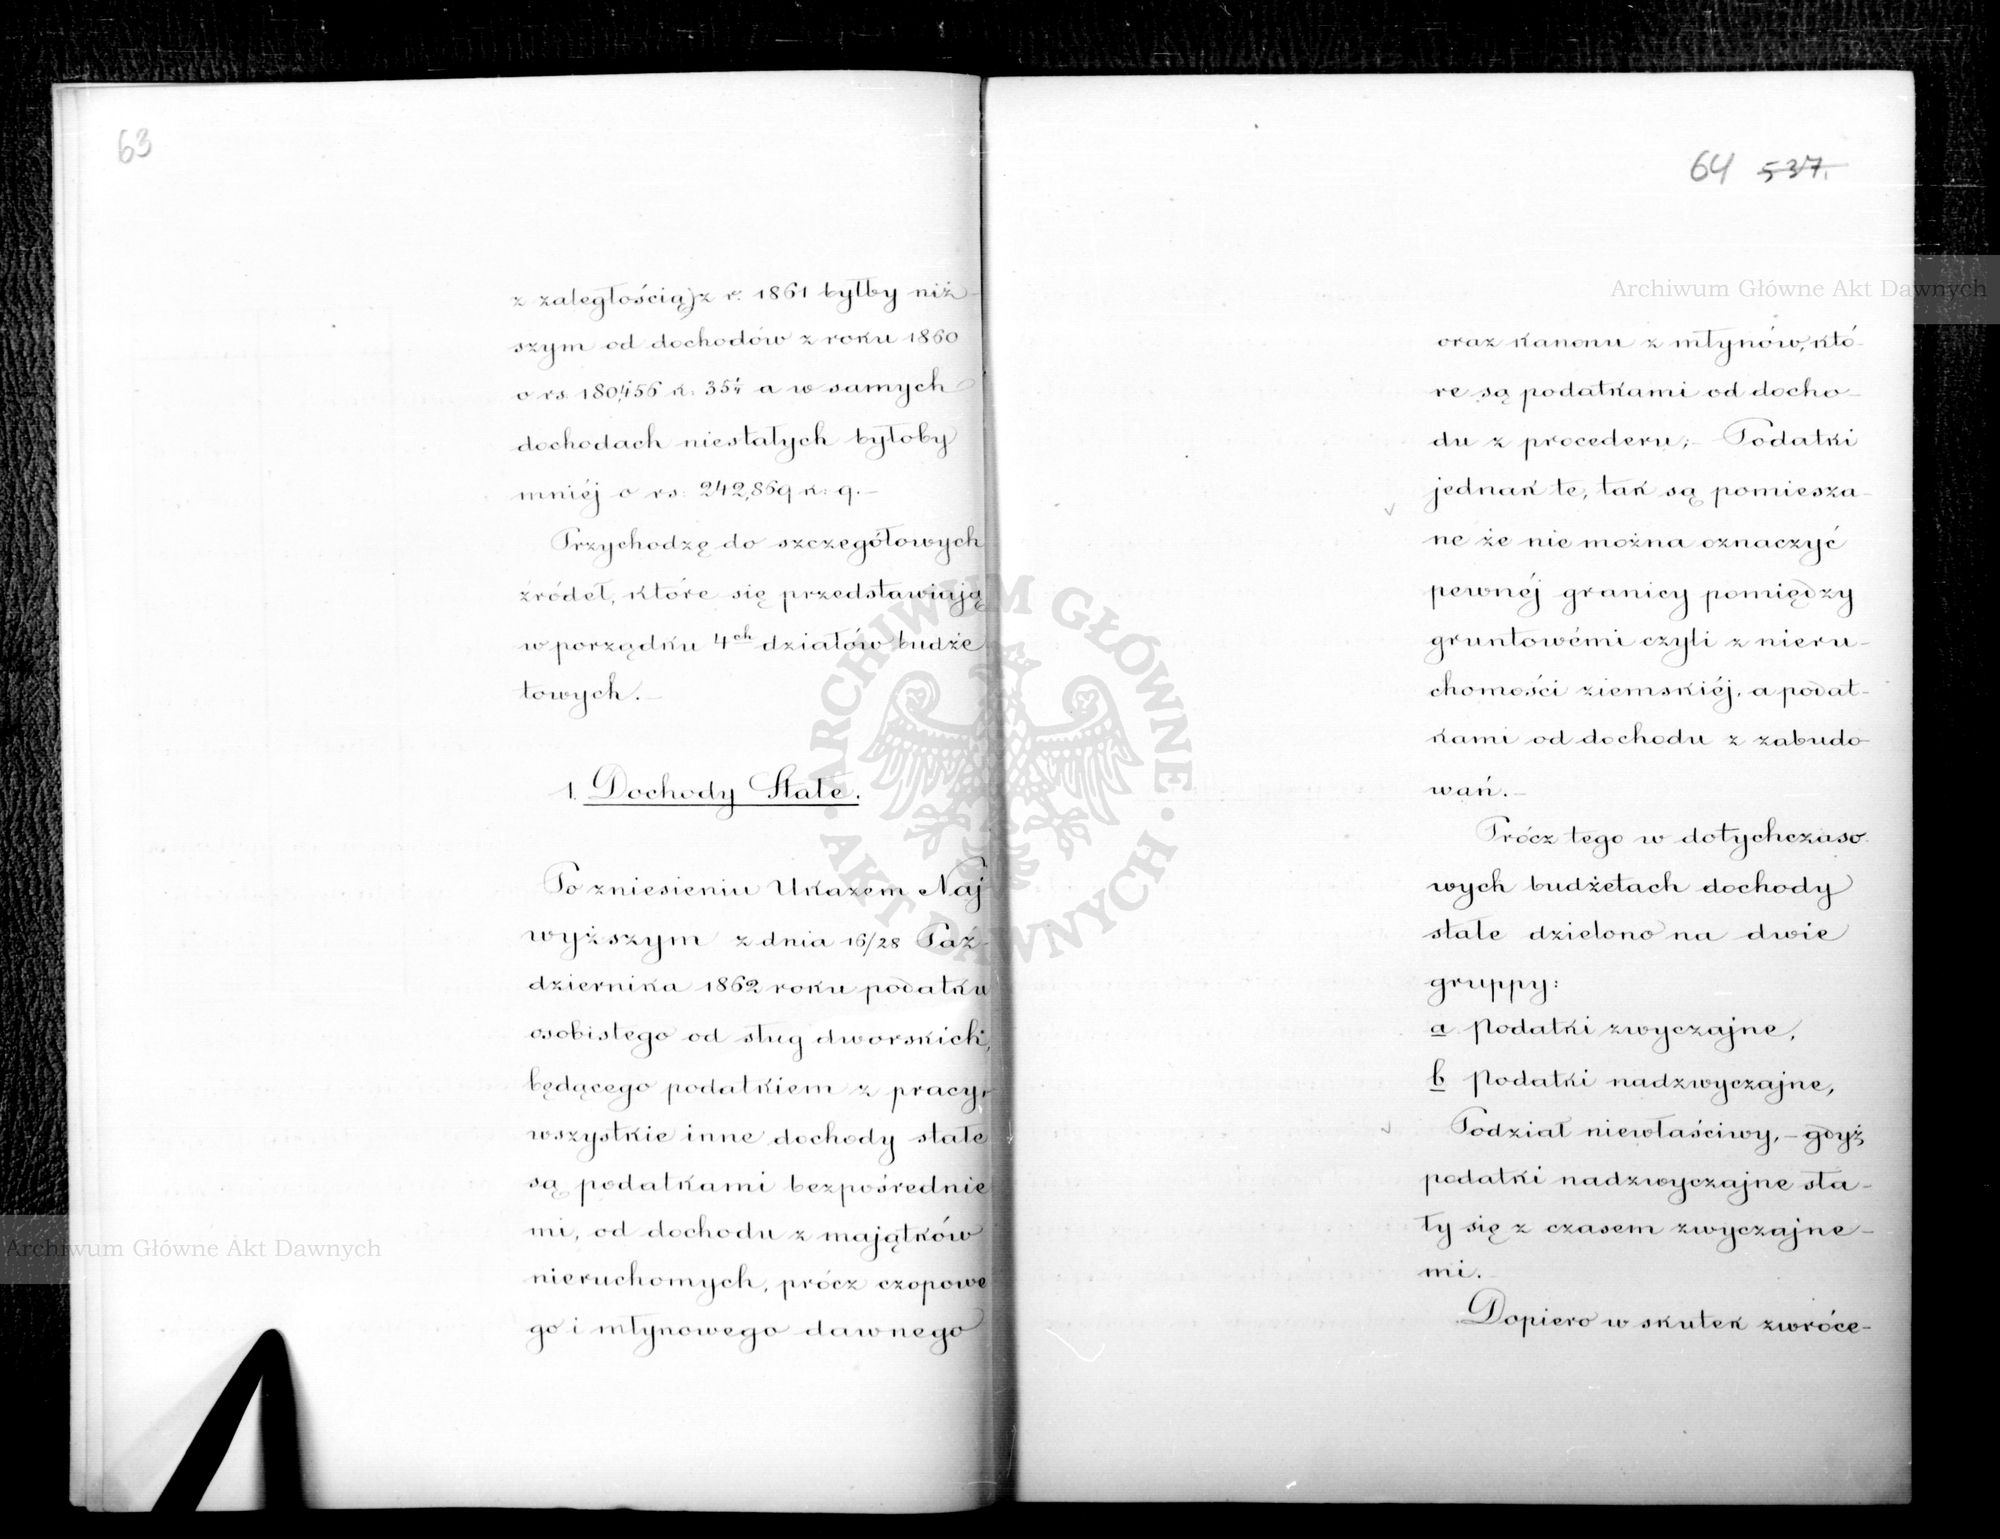 63
z zaległością) z r. 1861 byłby niż-
szym od dochodów z roku 1860
o rs. 180,456 k. 35½ a w samych
dochodach niestałych byłoby
mniéj o rs: 242,869 k: 9.-
Przychodzę do szczegółowych
źródeł, które się przedstawiają
w porządku 4ch działów budże
towych.-
1. Dochody Stałe.
Po zniesieniu Ukazem Naj
wyższym z dnia 16/28 Paź-
dziernika 1862 roku podatku
osobistego od sług dworskich,
będącego podatkiem z pracy,
wszystkie inne dochody stałe
są podatkami bezpośrednie
mi, od dochodu z majątków
nieruchomych, prócz czopowe
go i młynowego dawnego
64 537.
oraz kanonu z młynów, któ-
re są podatkami od docho-
du z procederu;- Podatki
jednak te, tak są pomiesza-
ne że nie można oznaczyć
pewnéj granicy pomiędzy
gruntowémi czyli z nieru-
chomości ziemskiéj, a podat-
kami od dochodu z zabudo
wań.-
Prócz tego w dotychczaso
wych budżetach dochody
stałe dzielono na dwie
gruppy:
a podatki zwyczajne,
b podatki nadzwyczajne,
Podział niewłaściwy,- gdyż
podatki nadzwyczajne sta-
ły się z czasem zwyczajne-
mi.
Dopiero w skutek zwróce-
Archiwum Główne Akt Dawnych
Archiwum Główne Akt Dawnych
ARCHIWUM GŁÓWNE AKT DAWNYCH